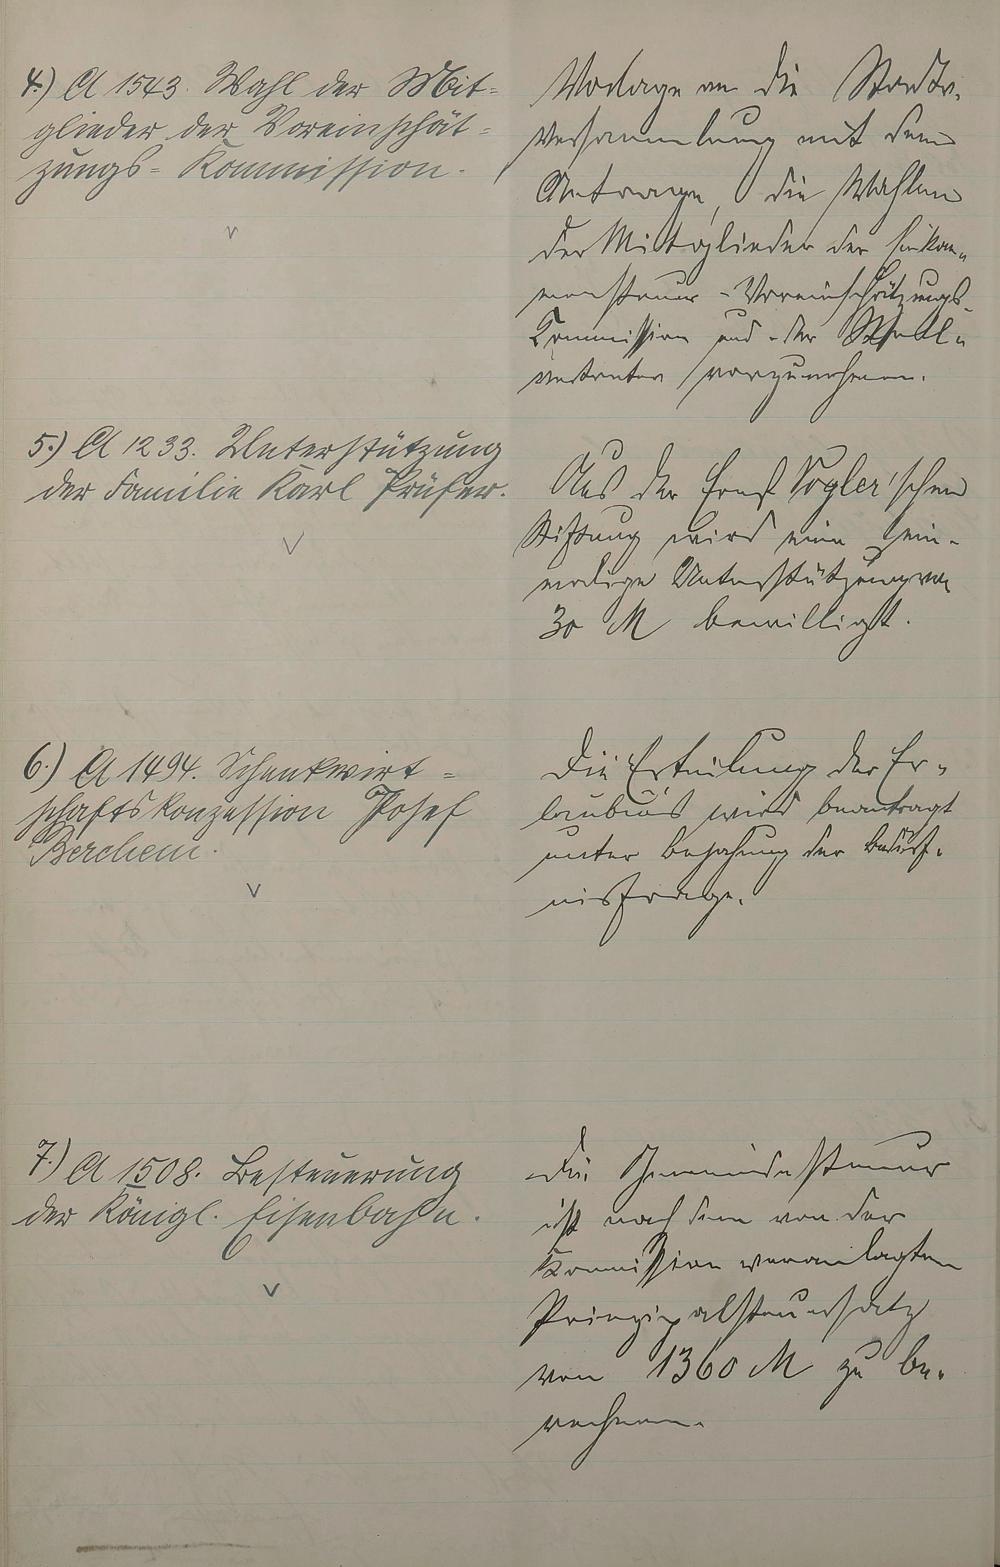 4.) A 1543. Wahl der Mit=
glieder der Voreinschät=
zungs=Kommission.
Vorlage an die Stadtv.
Versammlung mit dem
Antrage, die Wahlen
der Mitglieder der Einkom-
mensteuer-Voreinschätzungs-
Kommission und der Stell-
vertreter vorzunehmen.
5.) A 1233. Unterstützung
der Familie Karl Prüfer.
Aus der Ernst Vogler'schen
Stiftung wird eine ein-
malige Unterstützung von
30 M bewilligt.
6.) A 1494. Schankwirt=
schaftskonzession Josef
Berchem.
Die Erteilung der Er-
laubnis wird beantragt
unter Bejahung der Bedürf-
nisfrage.
7.) A 1508. Besteuerung
der Königl. Eisenbahn.
Die Gemeindesteuer
ist nach dem von der
Kommission veranlagten
Prinzipalsteuersatz
von 1360 M zu be-
rechnen.